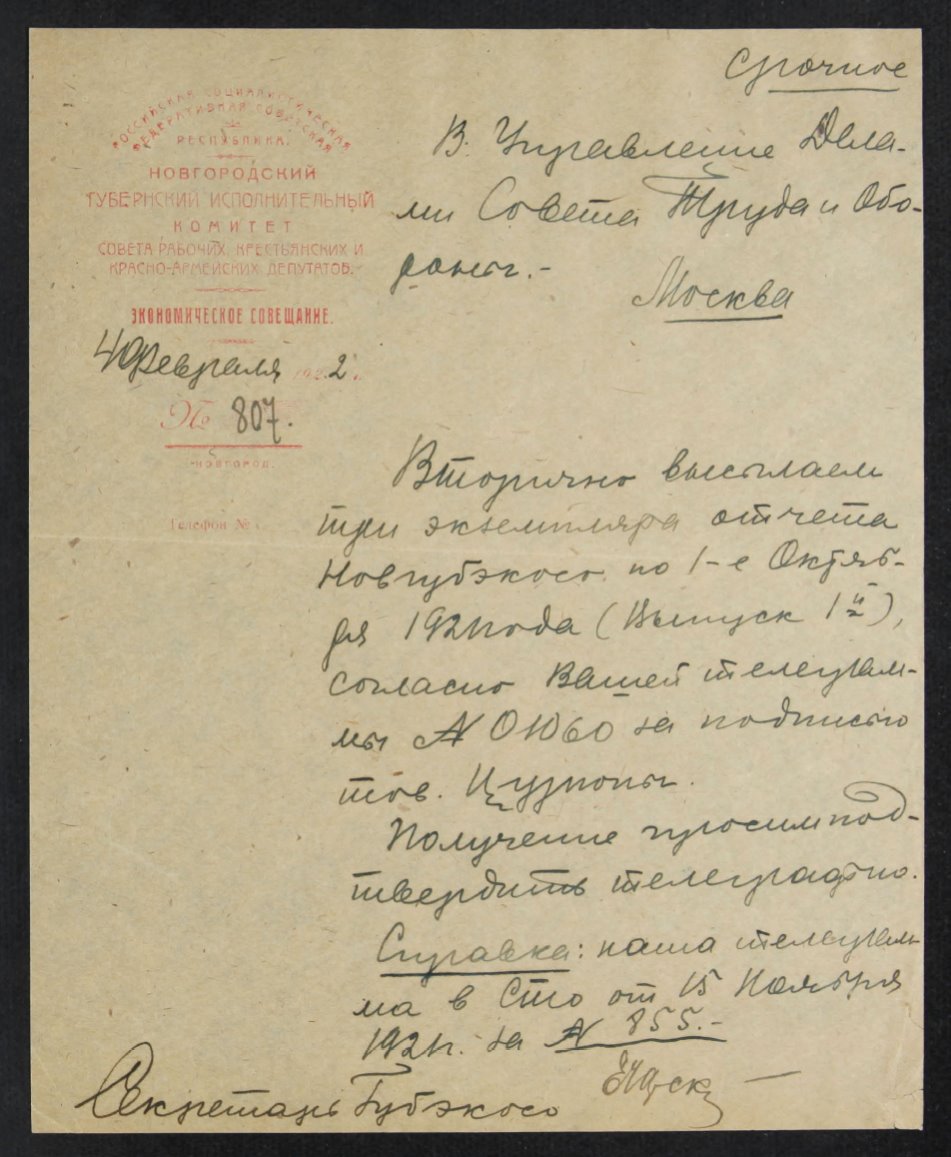 Срочное
РОССИЙСКАЯ СОЦИАЛИСТИЧЕСКАЯ
ФЕДЕРАТИВНАЯ СОВЕТСКАЯ
РЕСПУБЛИКА.
НОВГОРОДСКИЙ
ГУБЕРНСКИЙ ИСПОЛНИТЕЛЬНЫЙ
КОМИТЕТ
СОВЕТА РАБОЧИХ, КРЕСТЬЯНСКИХ И
КРАСНО-АРМЕЙСКИХ ДЕПУТАТОВ.
ЭКОНОМИЧЕСКОЕ СОВЕЩАНИЕ.
4 Февраля 1922 г.
№ 807.
НОВГОРОД.
Телефон №
В. Управление Дела-
ми Совета Труда и Обо-
роны.-
Москва
Вторично высылаем
три экземпляра отчета
Новгубэкосо по 1-е Октяб-
ря 1921 года (Выпуск 1й),
согласно Вашей телеграм-
мы № 01060 за подписью
тов.
Получение просим под-
твердить телеграфно.
Справка: наша телеграм-
ма в Сто от 15 Ноября
1921 г. за № 855.-
Секретарь Губэкосо